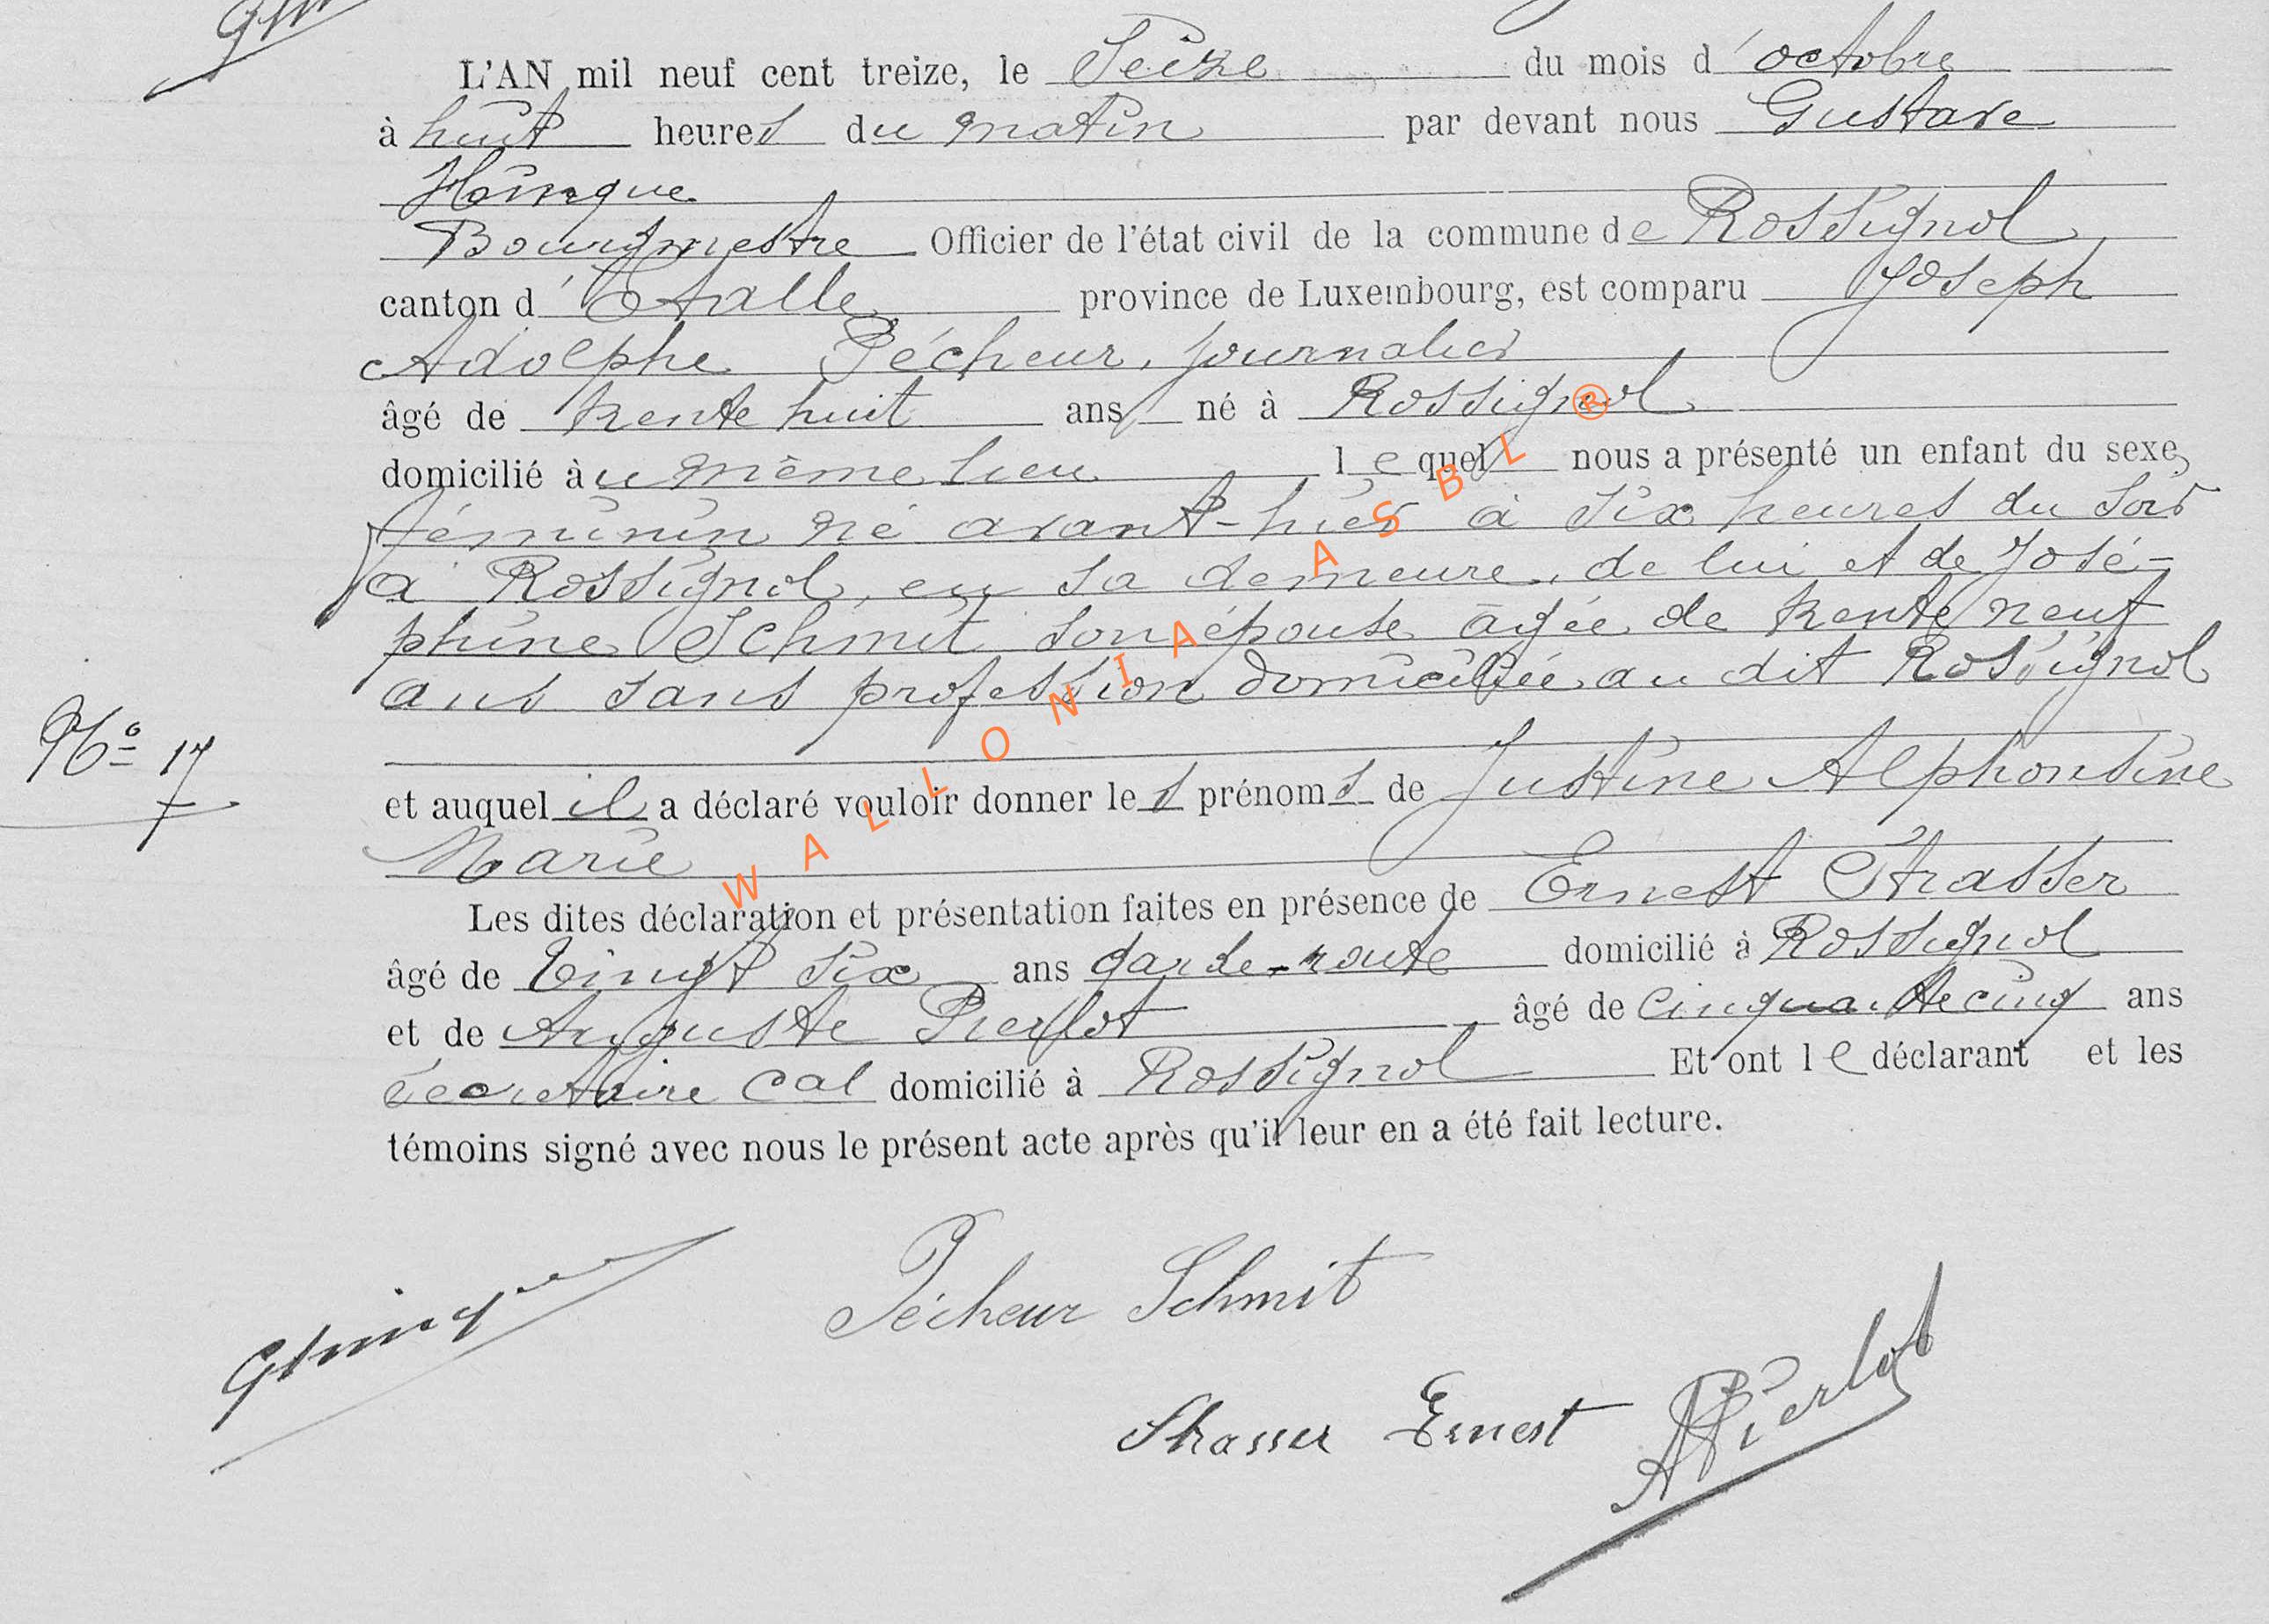 L'AN mil neuf cent treize, le Seize du mois d'octobre
à huit heures du matin par devant nous Gustave
Hinque
Bourgmestre Officier de l'état civil de la commune de Rossignol
canton d'Etalle province de Luxembourg, est comparu Joseph
Adolphe Pécheur, journalier
âgé de trente huit ans né à Rossignol
domicilié au même lieu lequel nous a présenté un enfant du sexe
féminin né avant-hier à six heures du soir
à Rossignol, en sa demeure, de lui et de José-
phine Schmit son épouse âgée de trente neuf
ans sans profession domiciliée au dit Rossignol
No 17
et auquel il a déclaré vouloir donner les prénoms de Justine Alphonsine
Marie
Les dites déclaration et présentation faites en présence de Ernest Strasser
âgé de vingt six ans garde-route domicilié à Rossignol
et de Auguste Pierlot âgé de cinquante cinq ans
secrétaire cal domicilié à Rossignol Et ont le déclarant et les
témoins signé avec nous le présent acte après qu'il leur en a été fait lecture.
GHinque Pécheur Schmit
Strasser Ernest APierlot
WALLONIA ASBL ®